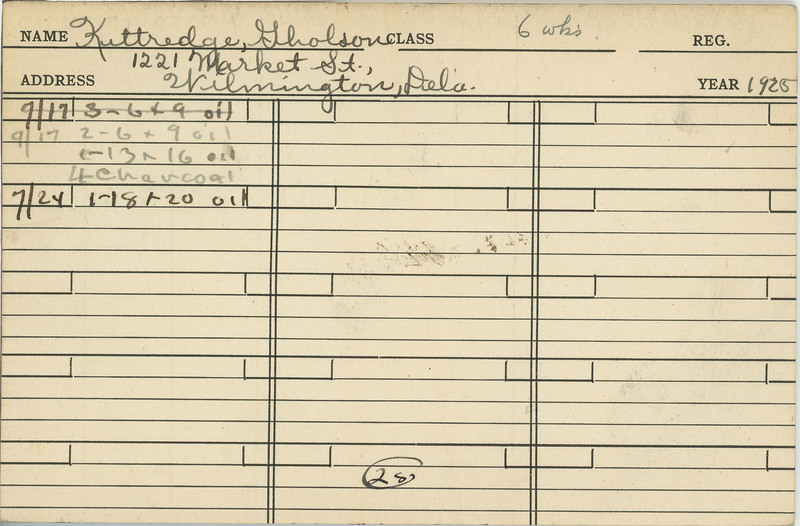 NAME Kittredge, Gholson CLASS 6 wks. REG.
1221 Market St.,
ADDRESS Wilmington, Dela. YEAR 1925
7/17 3-6 x 9 oil
9/17 2-6 x 9 oil
1-13 x 16 oil
4 Charcoal
7/24 1-18 x 20 oil
28